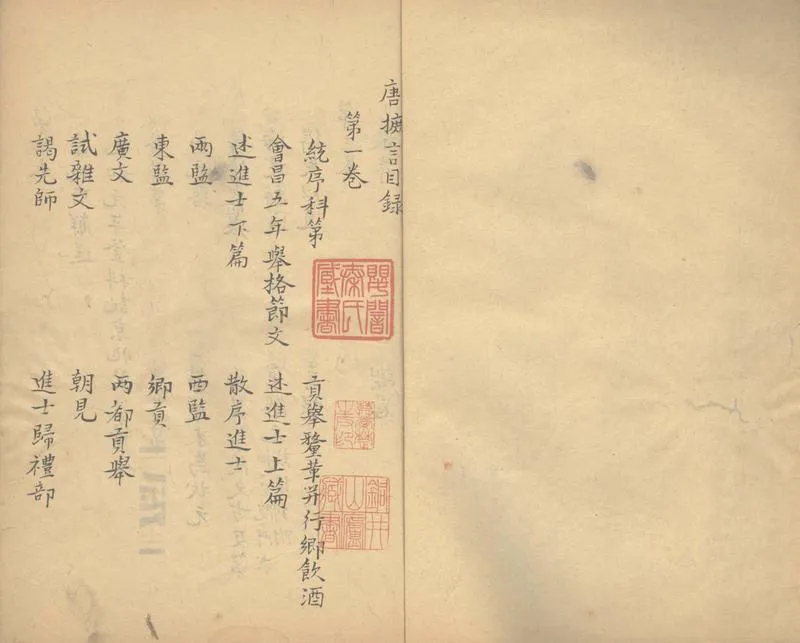 唐摭言目録
第一卷
統序科第　貢舉釐革并行鄉飲酒
會昌五年舉格節文　述進士上篇
述進士下篇　散序進士
兩監　西監
東監　鄉貢
廣文　兩都貢舉
試雜文　朝見
謁先師　進士歸禮部
銅井山廬藏書